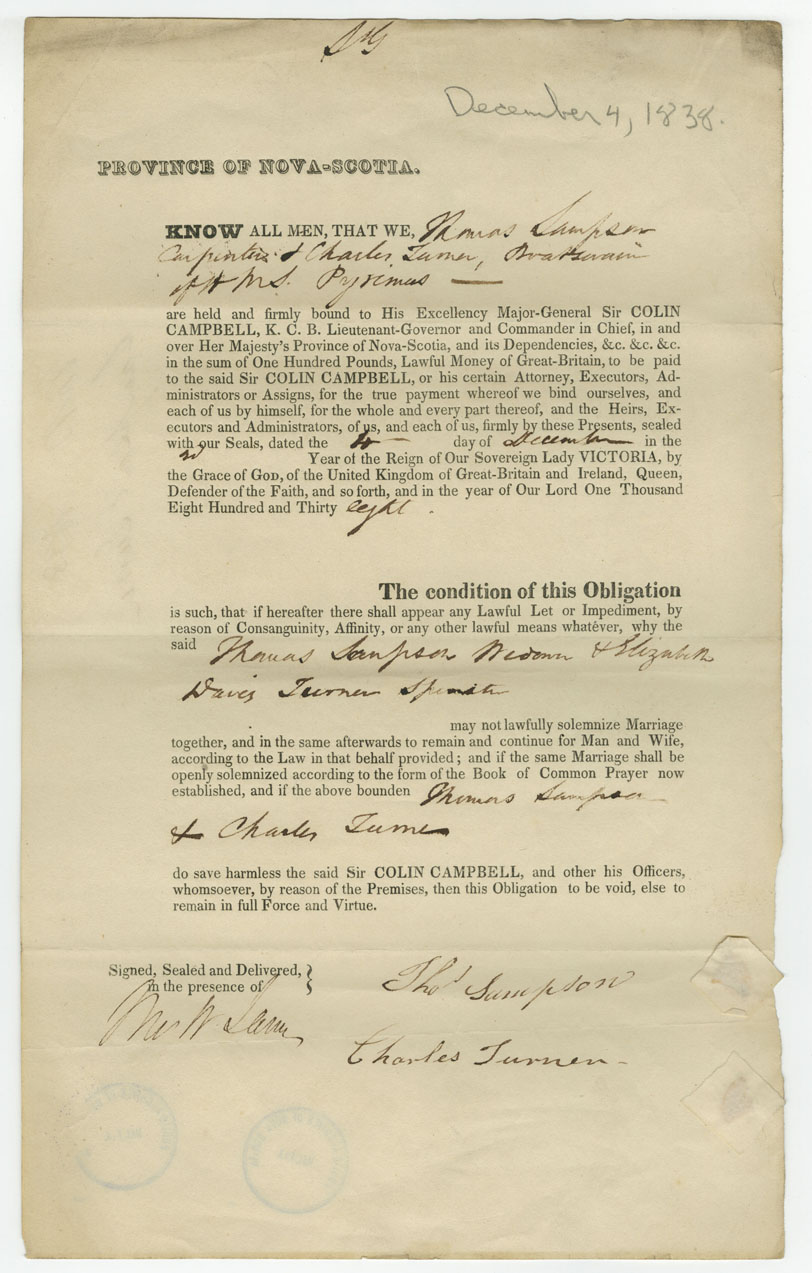 December 4, 1838.
PROVINCE OF NOVA-SCOTIA.
KNOW ALL MEN, THAT WE, Thomas Sampson
Carpenter & Charles Turner, Boatswain
of H M S. Pyrimus —
are held and firmly bound to His Excellency Major-General Sir COLIN
CAMPBELL, K. C. B. Lieutenant-Governor and Commander in Chief, in and
over Her Majesty's Province of Nova-Scotia, and its Dependencies, &c. &c. &c.
in the sum of One Hundred Pounds, Lawful Money of Great-Britain, to be paid
to the said Sir COLIN CAMPBELL, or his certain Attorney, Executors, Ad-
ministrators or Assigns, for the true payment whereof we bind ourselves, and
each of us by himself, for the whole and every part thereof, and the Heirs, Ex-
ecutors and Administrators, of us, and each of us, firmly by these Presents, sealed
with our Seals, dated the day of December in the
2d Year of the Reign of Our Sovereign Lady VICTORIA, by
the Grace of GOD, of the United Kingdom of Great-Britain and Ireland, Queen,
Defender of the Faith, and so forth, and in the year of Our Lord One Thousand
Eight Hundred and Thirty eight .
The condition of this Obligation
is such, that if hereafter there shall appear any Lawful Let or Impediment, by
reason of Consanguinity, Affinity, or any other lawful means whatever, why the
said Thomas Sampson Widower & Elizabeth
Davis Turner Spinster
may not lawfully solemnize Marriage
together, and in the same afterwards to remain and continue for Man and Wife,
according to the Law in that behalf provided; and if the same Marriage shall be
openly solemnized according to the form of the Book of Common Prayer now
established, and if the above bounden Thomas Sampson
& Charles Turner
do save harmless the said Sir COLIN CAMPBELL, and other his Officers,
whomsoever, by reason of the Premises, then this Obligation to be void, else to
remain in full Force and Virtue.
Signed, Sealed and Delivered,
in the presence of
Thos Sampson
Charles Turner